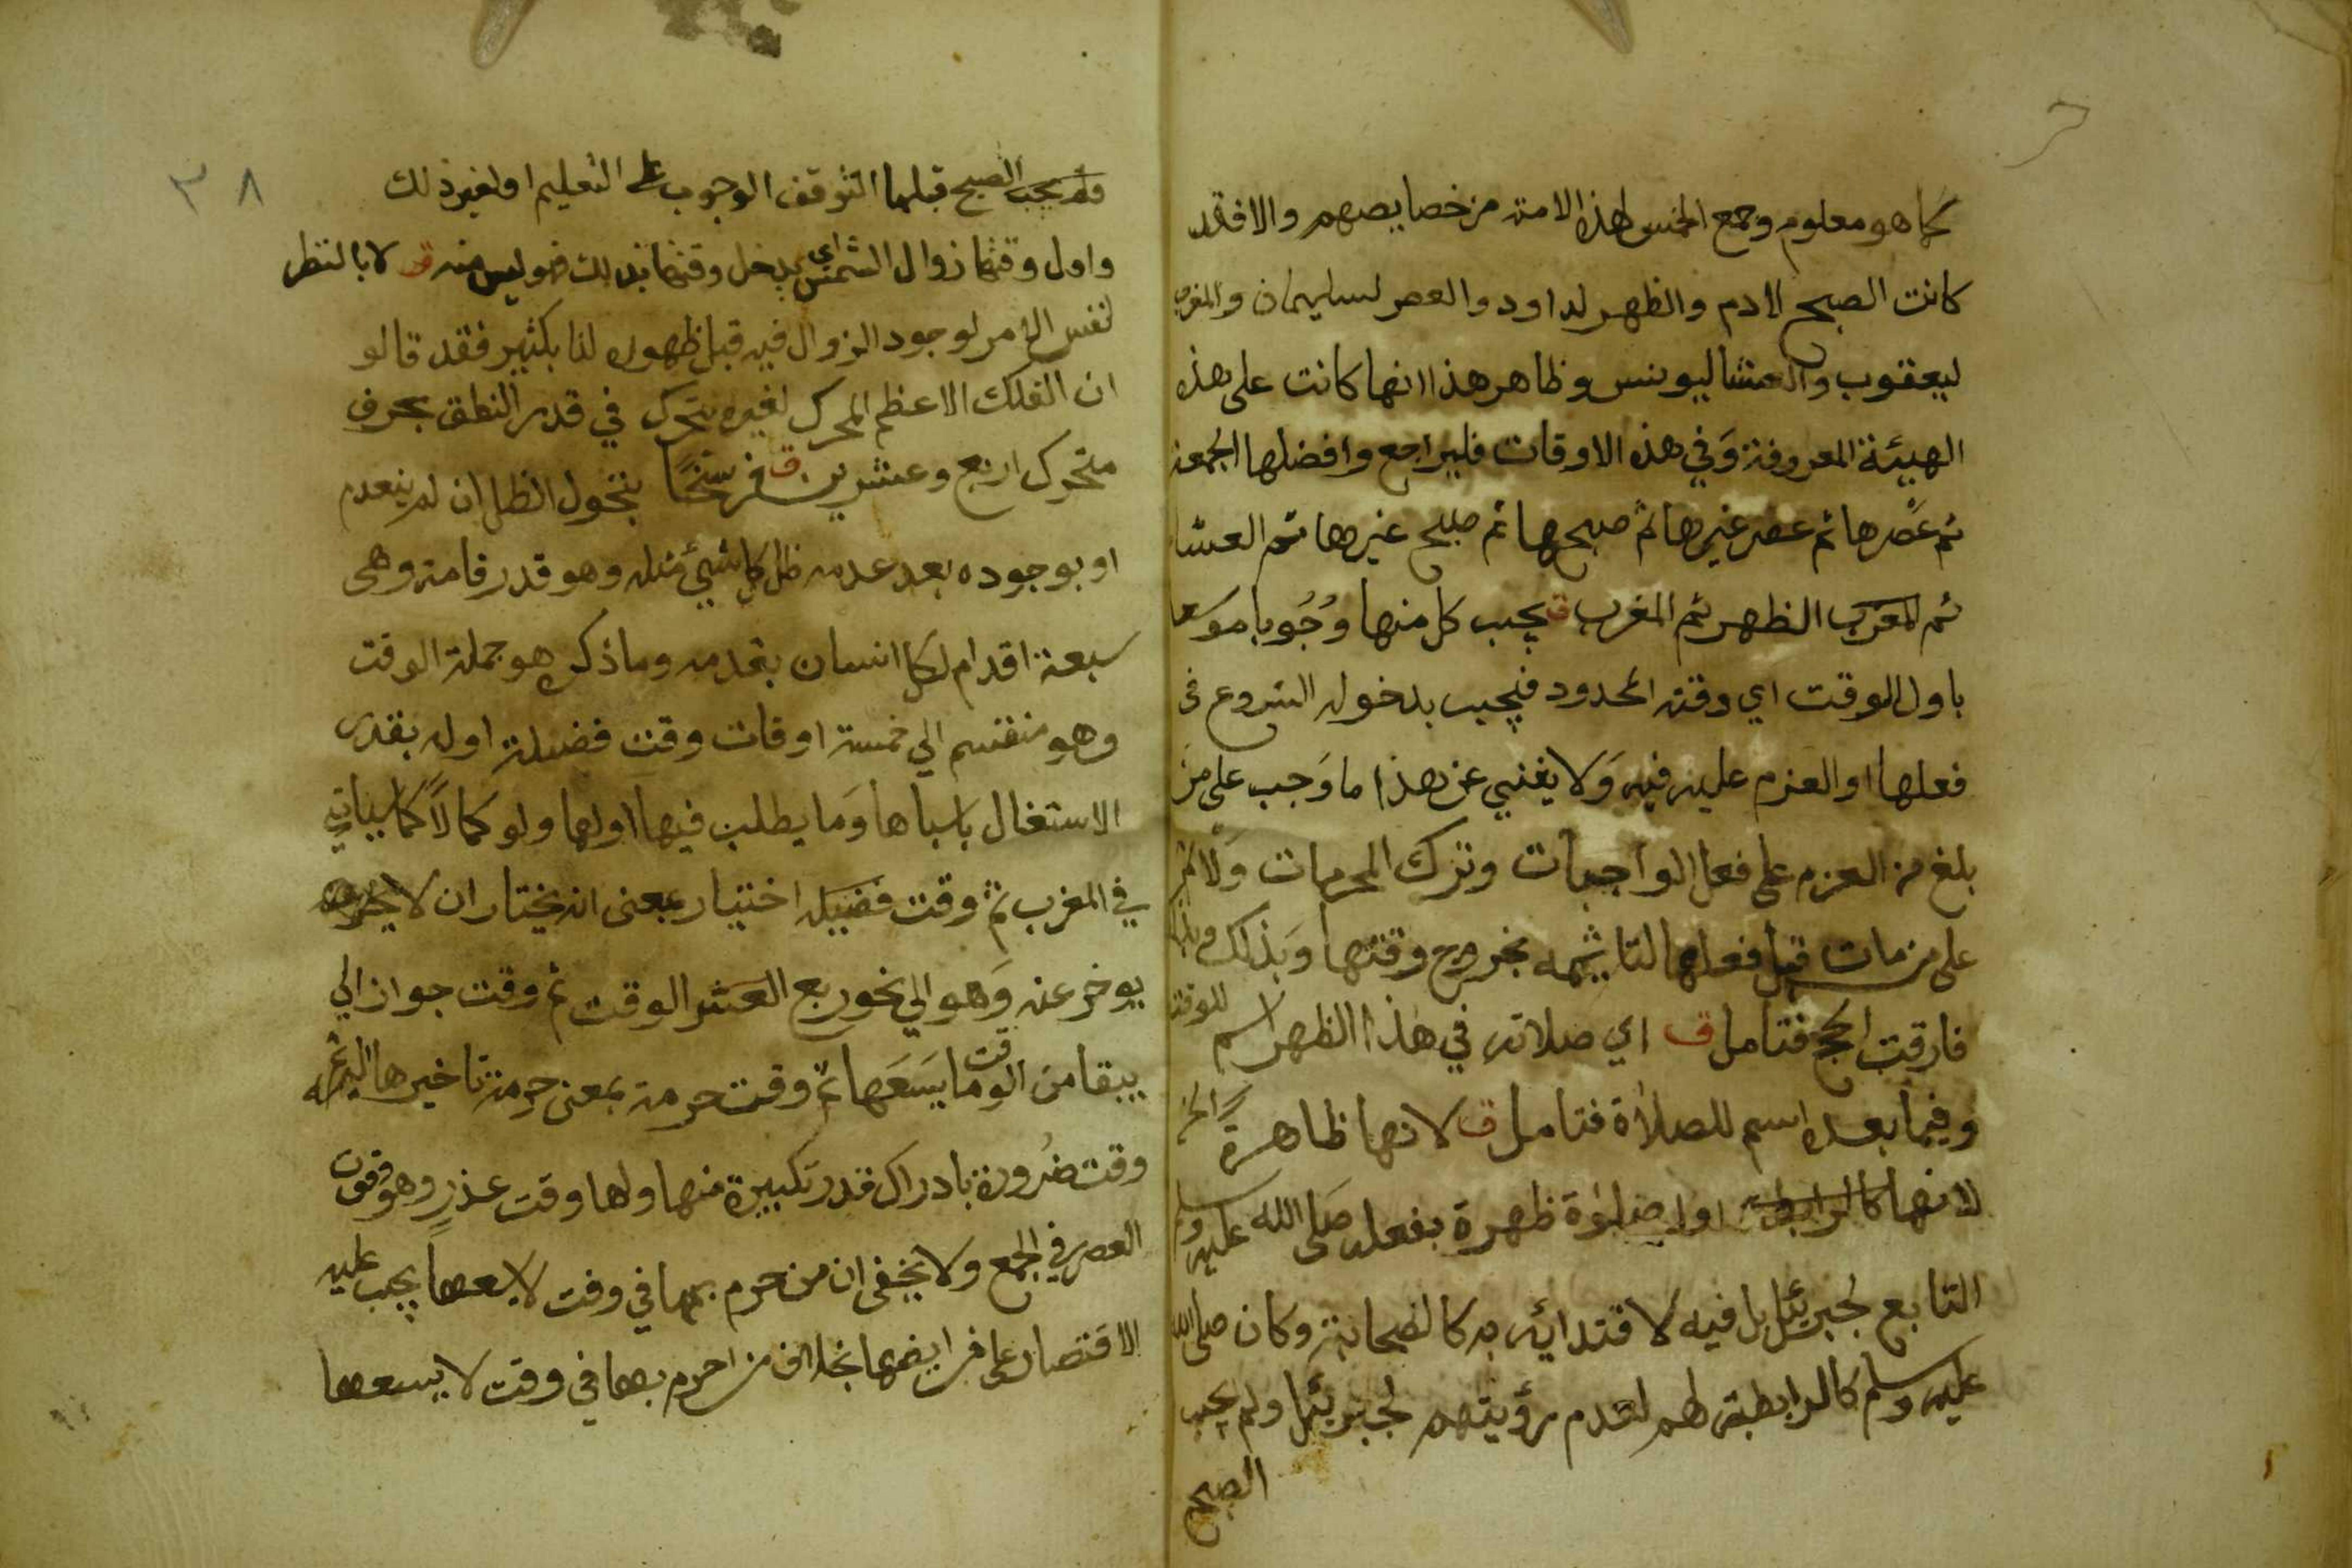 كما هو معلوم وجمع الخمس لهذه الامة من خصايصهم والا فقد
كانت الصبح لادم والظهر لداود والعصر لسليمان والمغرب
ليعقوب والعشا ليونس وظاهر هذا انها كانت على هذه
الهيئة المعروفة وَفي هذه الاوقات فليراجع وافضلها الجمعة
ثم عَصْرها ثم عصر غيرها ثم صبحها ثم صبح غيرها ثم العشا
ثم المغرب الظهر ثم المغرب ق يجب كل منها وُجُوبا موسعا
باول الوقت اي وقته المحدود فيجب بدخوله الشروع في
فعلها او العزم عليه فيه وَلا يغني عن هذا ما وَجب على من
بلغ من العزم على فعل الواجبات وترك المحرمات وَلا اثم
على من مات قبل فعلها لتا ثيمه بخروج وقتها وَبذلك
فارقت الحج فتامل ق اي صلاته في هذا الظهر اسم للوقت
وفيما بعده اسم للصلاة فتامل ق لانها ظاهرة الخ
لانها كالرابطة اول صلوة ظهرة بفعله صَلى الله عليه وسلم
التابع لجبريئل بل فيه لاقتدائه به كالصحابة وكان صلى الله
عليه وسلم كالرابطة لهم لعدم رؤيتهم لجبريئل ولم يجب
الصبح
٣٨
ولم يجب الصبح قبلها التوقف الوجوب على التعليم او لغير ذلك
واول وقتها زوال الشمس اي يدخل وقتها بذلك فهو ليس منه ق لا بالنظر
لنفس الامر لوجود الزوال فيه قبل ظهوره لنا بكثير فقد قالو
ان الفلك الاعظم المحرك لغيره يتحرك في قدر النطق بحرف
متحرك اربع وعشرين فرسخًا ق بتحول الظل ان لم ينعدم
او بوجوده بعد عدمه ظل كل شيئ مثله وهو قدر قامة وهى
سبعة اقدام لكل انسان بقدمه وما ذكره هو جملة الوقت
وهو منقسم الي خمسة اوقات وقت فضيلة اوله بقدر
الاستغال باسبابها وَما يطلب فيها اولها ولو كمالاً كما سياتي
في المغرب ثم وقت فضيله اختيار بمعنى انه يختار ان لا
يوخر عنه وَهو الي نحو ربع العشر الوقت ثم وقت جواز الي
يبقا من الوقت ما يسَعَها ثم وقت حرمة بمعنى حرمة تاخيرها اليه ثم
وقت ضرورة بادراك قدر تكبيرة منها ولها وقت عذر وهو وقت
العصر في الجمع ولا يخفى ان من حرم بها في وقت لا يسعها يجب عليه
الاقتصار على فرايضها بخلاف من احرم بها في وقت لا يسعها